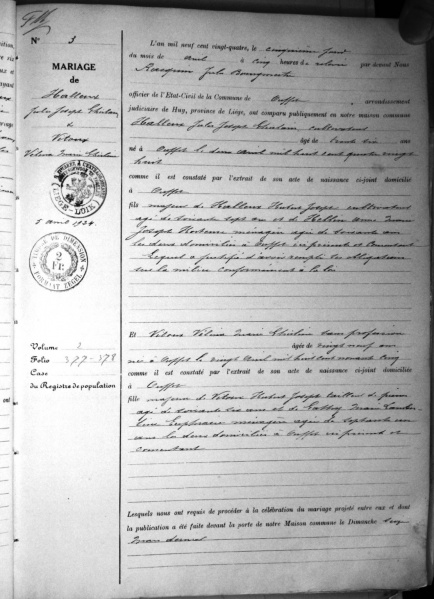 N° 3
MARIAGE
de
Hallens
Jules Joseph Ghislain
&
Veloux
Velina Marie Ghislaine
5 avril 1924.
TIMBRE DE DIMENSION
2
FR
FORMAAT ZEGEL
Volume 2
Folio 377-378
Case
du Registre de population
L'an mil neuf cent vingt-quatre, le cinquième jour
du mois de avril à cinq heures de relevée par devant Nous
Jules
officier de l'Etat-Civil de la Commune de Ouffet, arrondissement
judiciaire de Huy, province de Liége, ont comparu publiquement en notre maison commune
Hallens Jules Joseph Ghislain, cultivateur
âgé de trente six ans
né à Ouffet le deux avril mil huit cent quatre vingt
huit
comme il est constaté par l'extrait de son acte de naissance ci-joint domicilié
à Ouffet
fils majeur de Hallens Hubert Joseph cultivateur
agé de soixante sept ans et de
Joseph Hortense ménagère agée de soixante ans
les deux domiciliés à Ouffet ici présent et consentant
Lequel a justifié d'avoir rempli ses obligations
sur la milice conformément à la loi
Et Veloux Velina Marie Ghislaine sans profession
âgée de vingt neuf ans
née à Ouffet le vingt avril mil huit cent nonante cinq
comme il est constaté par l'extrait de son acte de naissance ci-joint domiciliée
à Ouffet
fille majeure de Veloux Hubert Joseph tailleur de pierres
agé de soixante six ans et de
Euphrasie ménagère agée de septante un
ans les deux domiciliés à Ouffet ici présent et
consentant
Lesquels nous ont requis de procéder à la célébration du mariage projeté entre eux et dont
la publication a été faite devant la porte de notre Maison commune le Dimanche
mars dernier